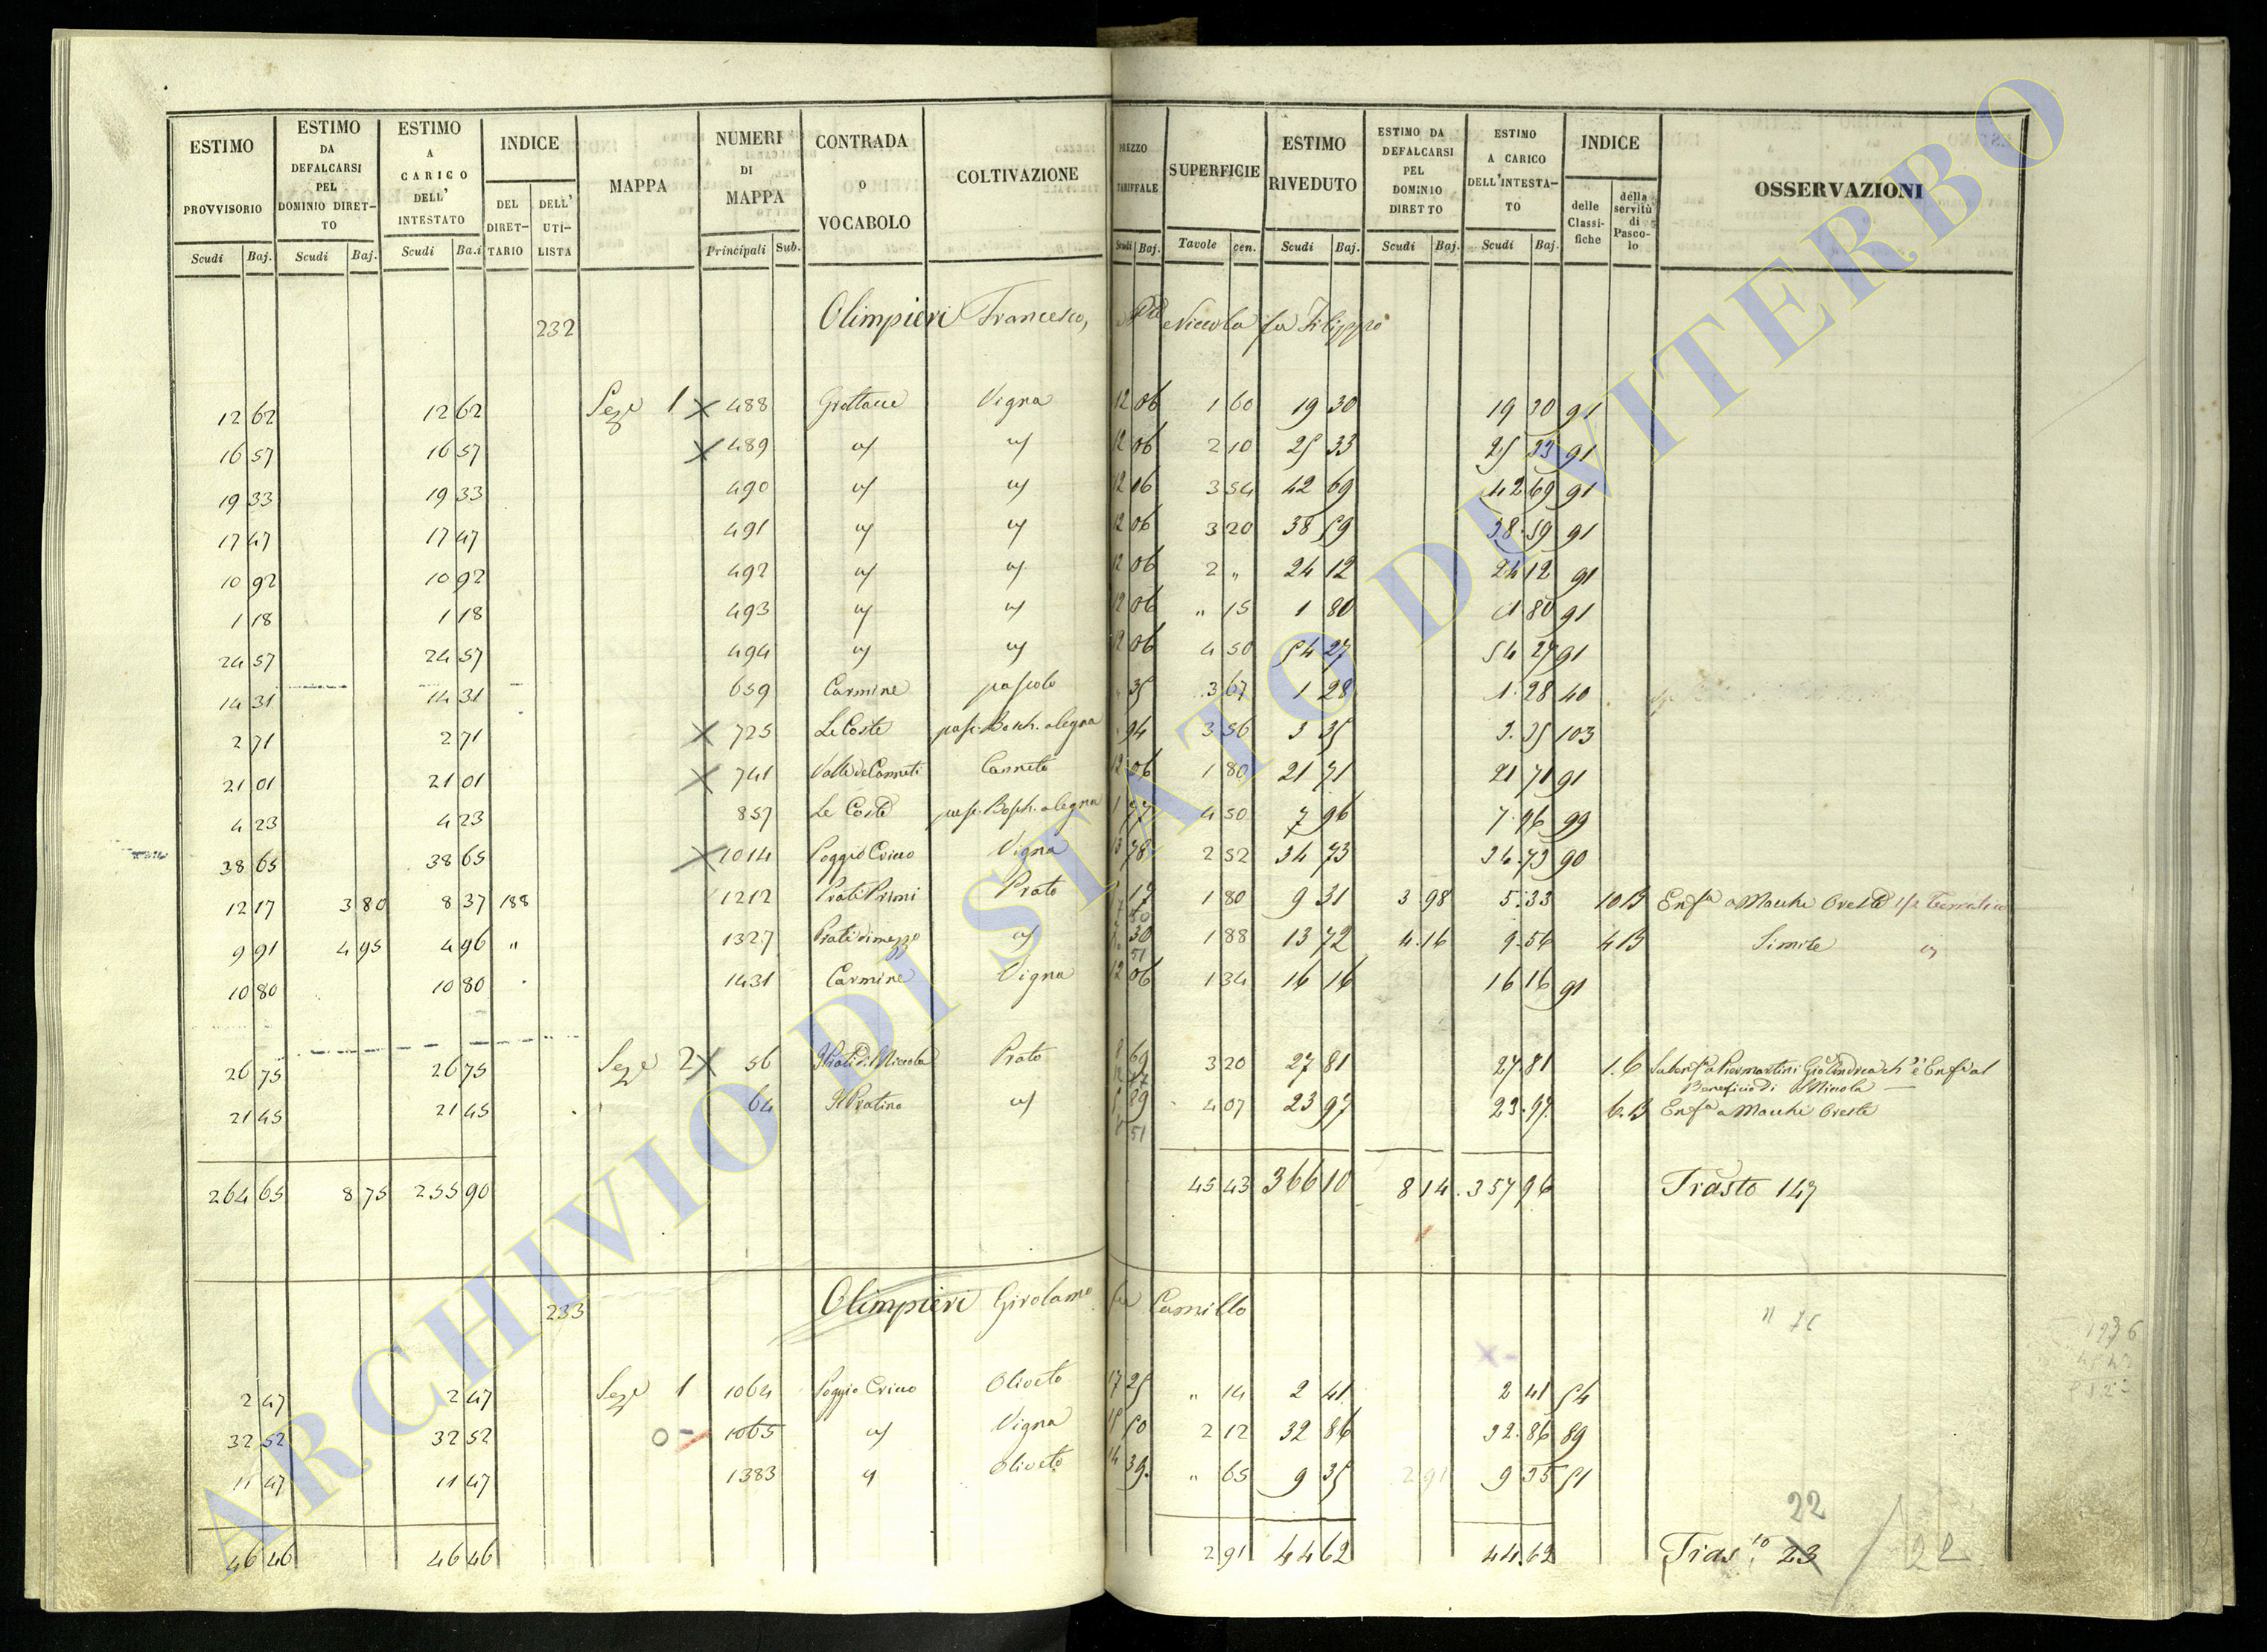 ESTIMO PROVVISORIO Scudi Baj.
ESTIMO DA DEFALCARSI PEL DOMINIO DIRET-TO Scudi Baj.
ESTIMO A CARICO DELL' INTESTATO Scudi Ba.i
INDICE DEL DIRET-TARIO DELL' UTI-LISTA
MAPPA
NUMERI DI MAPPA Principali Sub.
CONTRADA O VOCABOLO
COLTIVAZIONE
PREZZO TARIFFALE Scudi Baj.
SUPERFICIE Tavole cen.
ESTIMO RIVEDUTO Scudi Baj.
ESTIMO DA DEFALCARSI PEL DOMINIO DIRETTO Scudi Baj.
ESTIMO A CARICO DELL'INTESTA-TO Scudi Baj.
INDICE delle Classi-fiche della servitù di Pasco-lo
OSSERVAZIONI
232 Olimpieri Francesco, Niccola fu Filippo
12 62 12 62 Seze 1 488 Grottacce Vigna 12 06 1 60 19 30 19 30 91
16 57 16 57 489 " " 12 06 2 10 25 33 25 33 91
19 33 19 33 490 " " 12 06 3 54 42 69 42 69 91
17 47 17 47 491 " " 12 06 3 20 38 59 38 59 91
10 92 10 92 492 " " 12 06 2 " 24 12 24 12 91
1 18 1 18 493 " " 12 06 " 15 1 80 1 80 91
24 57 24 57 494 " " 12 06 4 50 54 27 54 27 91
14 31 14 31 659 Carmine pascolo " 35 3 67 1 28 1 28 40
2 71 2 71 725 Le Coste pasc. Bosch. a legna " 94 3 56 3 35 3 35 103
21 01 21 01 741 Valle de Canneti Canneto 12 06 1 80 21 71 21 71 91
4 23 4 23 857 Le Coste pasc. Bosch. a legna 1 77 4 50 7 96 7 96 99
38 65 38 65 1014 Poggio Vigna 13 78 2 52 34 73 34 73 90
12 17 3 80 8 37 188 1212 Prati Primi Prato 1 80 9 31 3 98 5 33 10 B Enf.a a Macchi Oreste
9 91 4 95 4 96 " 1327 Prati di mezzo " 7 30 1 88 13 72 4 16 9 56 4 B Simile "
10 80 10 80 1431 Carmine Vigna 12 06 1 34 16 16 16 16 91
26 75 26 75 Seze 2 56 Prati di S Niccola Prato 8 69 3 20 27 81 27 81 1. 6 Subenf.a Piermartini Gio Andrea ch'è Enf.a al
Beneficio di S Nicola
21 45 21 45 64 Il Pratino " 5 89 4 07 23 97 23 97 6. B Enf.a a Macchi Oreste
8 51
264 65 8 75 255 90 45 43 366 10 8 14 357 96 Trasto 147
233 Olimpieri Girolamo fu Camillo
2 47 2 47 Seze 1 1064 Poggio Oliveto 17 25 " 14 2 41 2 41 54
32 52 32 52 1065 " Vigna 15 50 2 12 32 86 32 86 89
11 47 11 47 1383 " Oliveto 14 39 " 65 9 35 2 91 9 35 51
22
46 46 46 46 2 91 44 62 44 62 Tras.to 23 / 22
ARCHIVIO DI STATO DI VITERBO